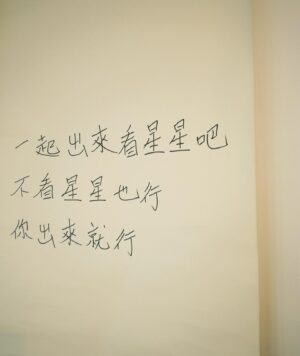 一起出來看星星吧
不看星星也行
你出來就行